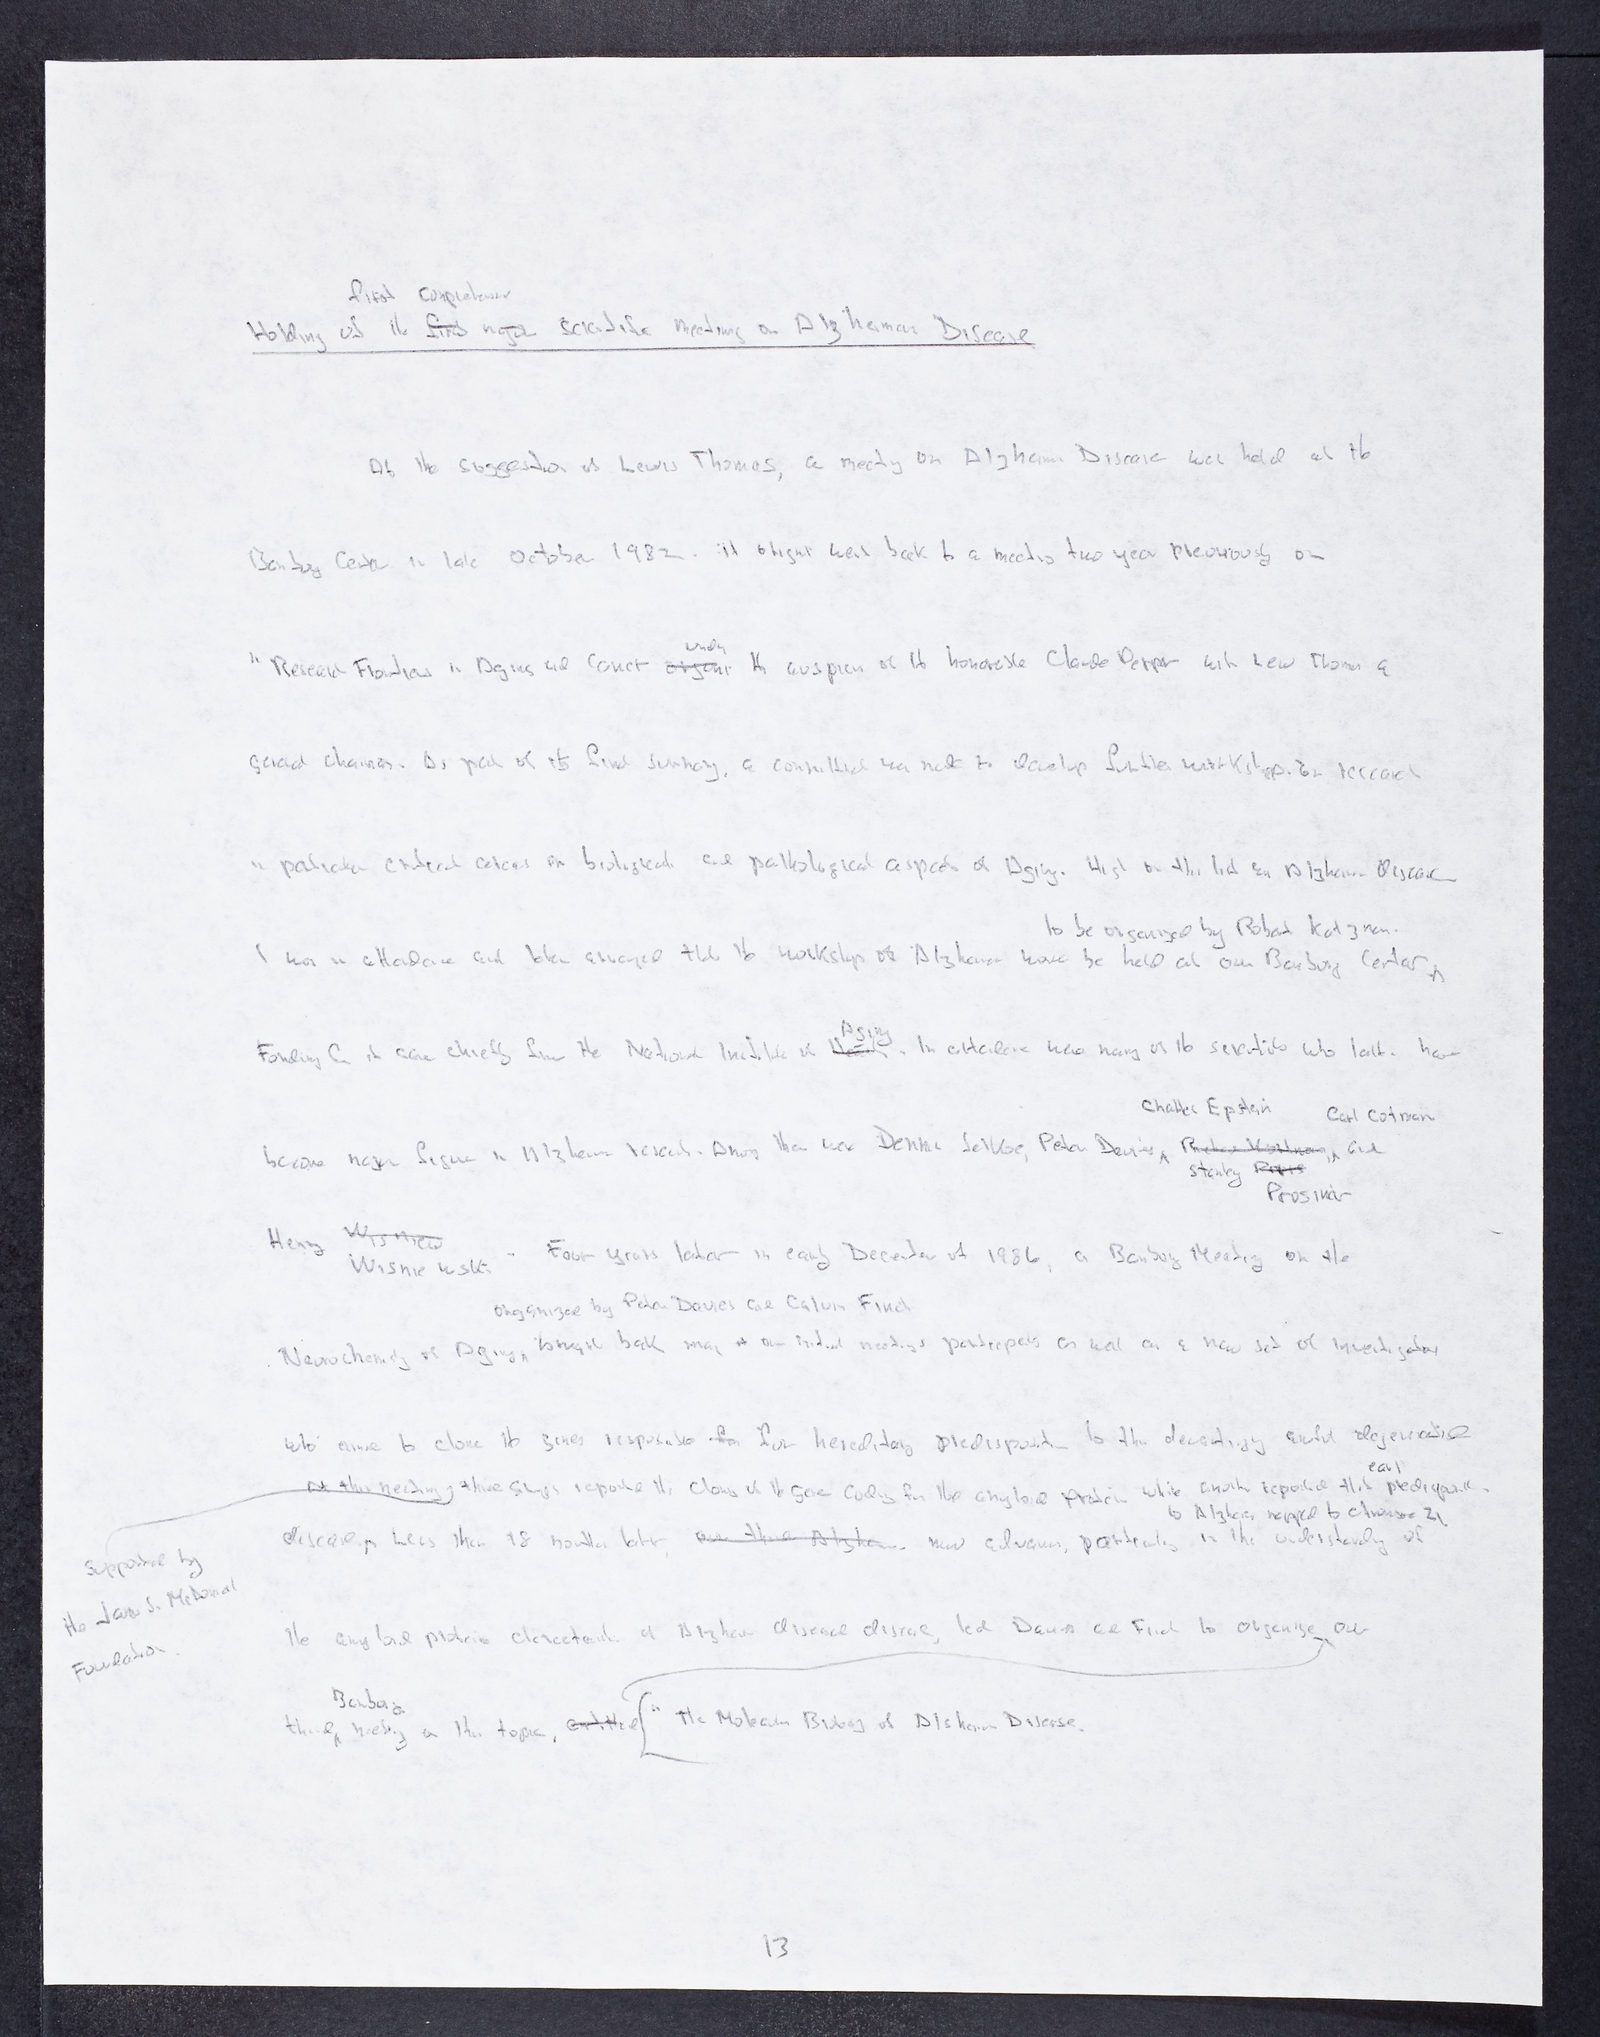 first comprehensive
Holding of the first major Scientific Meeting on Alzheimer Disease
At the suggestion of Lewis Thomas, a meeting on Alzheimer Disease was held at the
Banbury Center in late October 1982. it origins went back to a meeting two year previously on
under
"Research Frontiers in Aging and Cancer the auspices of the honorable Claude Pepper with Lew Thomas a
general chairman. As part of its final summary, a committed was made to develop further workshops on research
in particular critical areas in biological and pathological aspects of Aging. High on this list was Alzheimer Disease
to be organized by Robert Katzman.
I was in attendance and later arranged that the workshop on Alzheimer would be held at our Banbury Center
Aging
Funding for it came chiefly from the National Institute of . In attendance were many of the scientists who later have
Charles Epstein Carl Cotman
become major figure in Alzheimer research. Among them were Dennis Selkoe, Peter Davies, and
Stanley
Prosiner
Henry Wisniew
Wisniewski. Four years later in early December of 1986, a Banbury Meeting on the
organized by Peter Davies and Calvin Finch
Neurochemistry of Aging, brought back many of our initial meetings participants as well as a new set of investigators
who aimed to clone the genes responsible for for hereditary predisposition to this devastingly awful degenerative
early
At this meeting, three groups reported the cloning of the gene coding for the amyloid protein while another reported that predisposition
to Alzheimer mapped to chromosome 21.
disease. Less than 18 months later, new advances, particularly in the understanding of
supported by
the James S. McDonnal
Foundation.
the amyloid protein characteristic of Alzheimer disease disease, led Davies and Finch to organize our
Banbury
third meeting on this topic, entitled "The Molecular Biology of Alzheimer Disease.
13